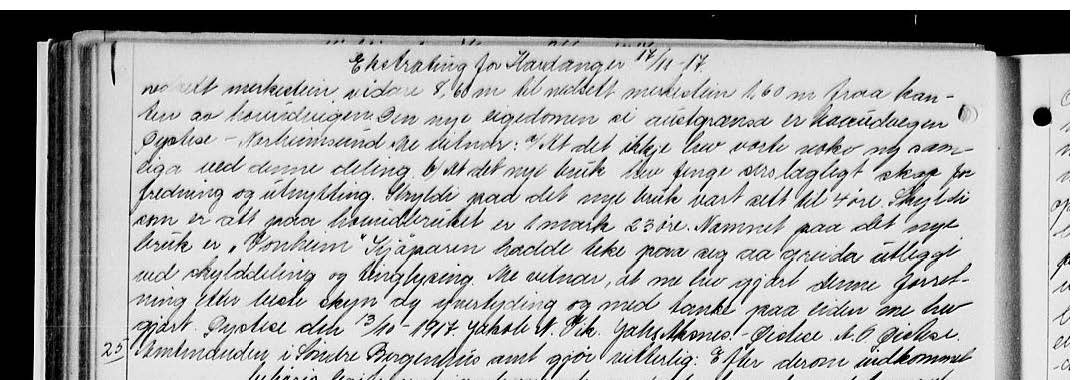 Ekstrating for Hardanger 17/11-17
nedsett merkestein, vidare 8,60 m til nedsett merkestein 1,60 m fraa kan-
ten av hovudvegen. Den nye eigedomen si austgrænsa er hovudvegen
Øystese - Norheimsund. Me vitnar: At det ikkje hev vorte noko ny sam-
eiga ved denne deling. b) At det nye bruk hev fenge skap for
fredning og utnytting. Skyldi paa det nye bruk vart sett til 4 øre. Skyldi
som er att paa hovudbruket er 1 mark 23 øre. Namnet paa det nye
bruk er „ Kjøparen hadde teke paa seg aa greida utleggi
ved skylddeling og tinglysing. Me vitnar, at me hev gjort denne forret-
ning etter beste skyn og yvertyding og med tanke paa eiden me hev
gjort. Øystese den 13/10-1917 Jakob N. Vik. Øistese. Øistese.
25 Amtmanden i Søndre Bergenhus amt gjør vitterlig: Efter derom indkommet